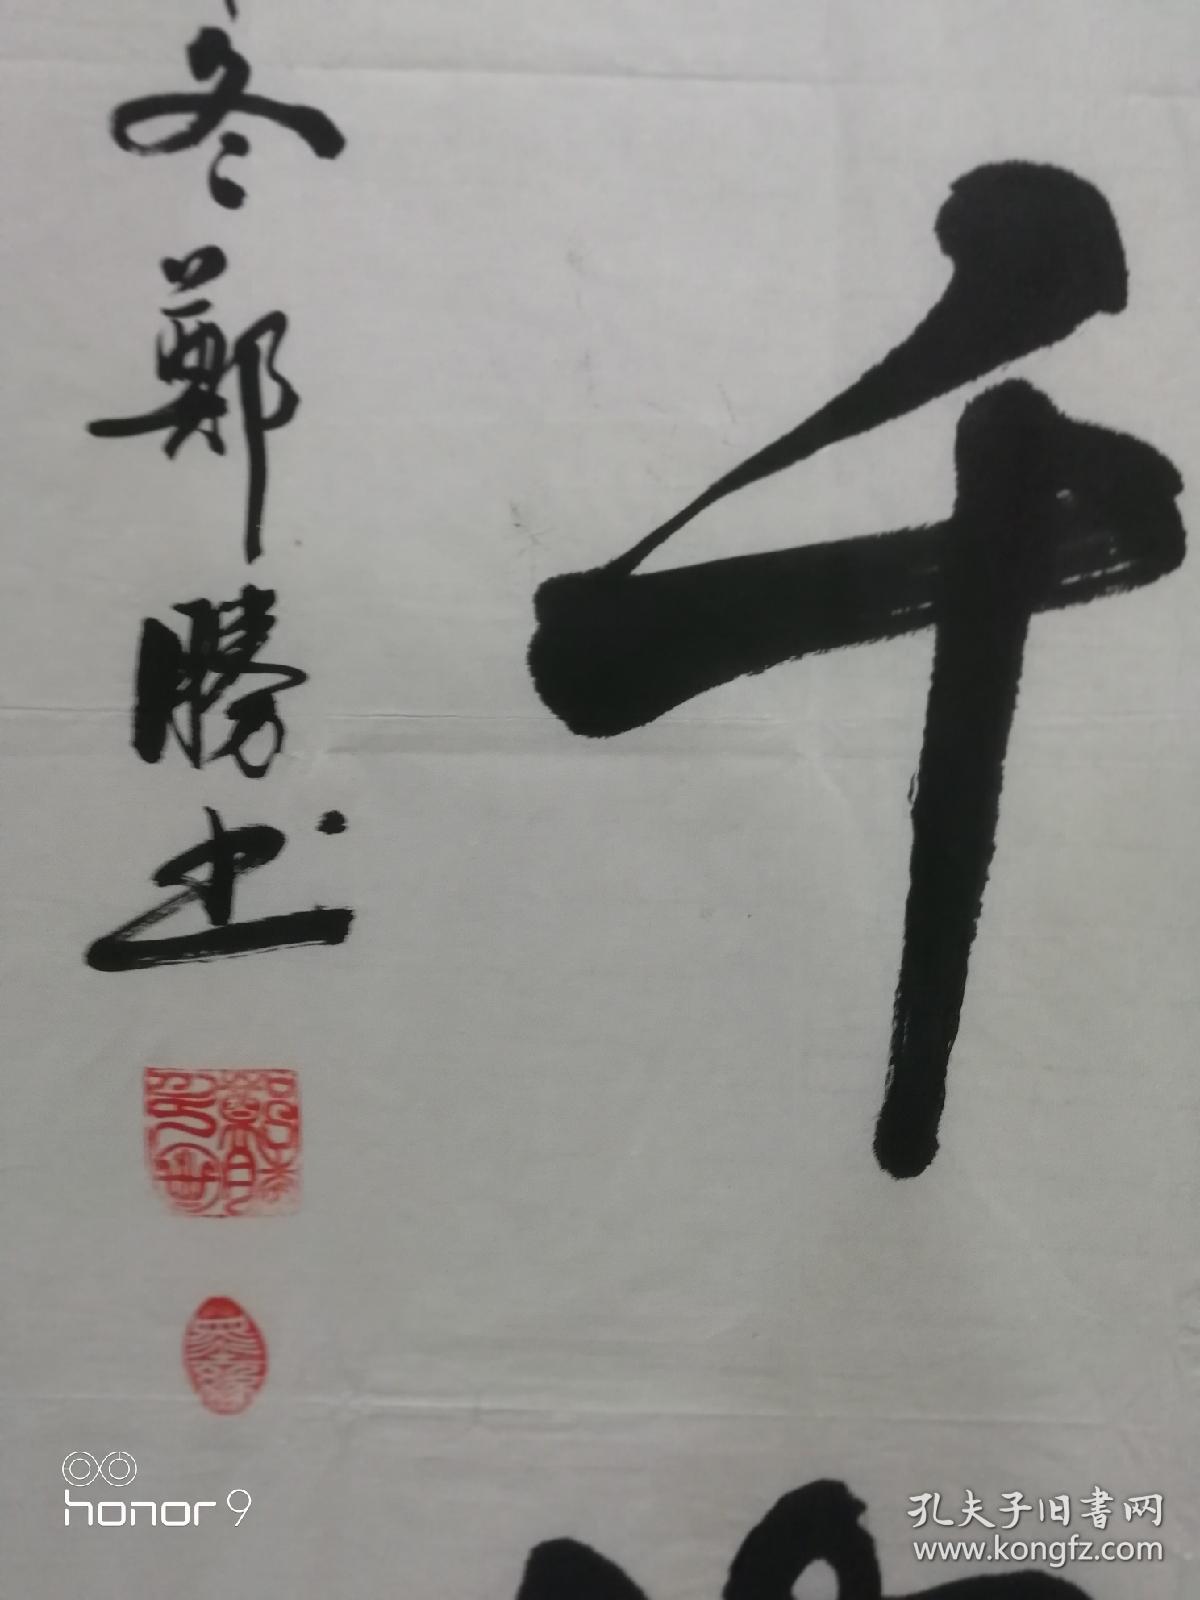 千
冬鄭勝书
honor 9
孔夫子旧书网
www.kongfz.com